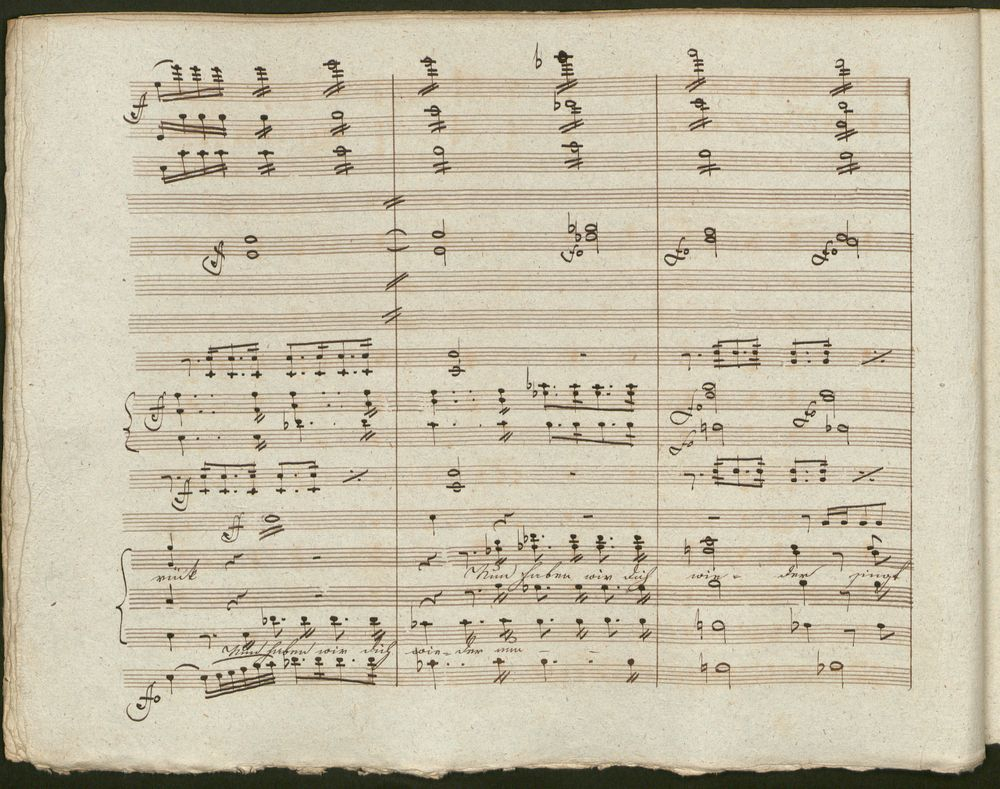 rück Nun haben wir dich wie- der jungs
Nun haben wir dich wie-der nun